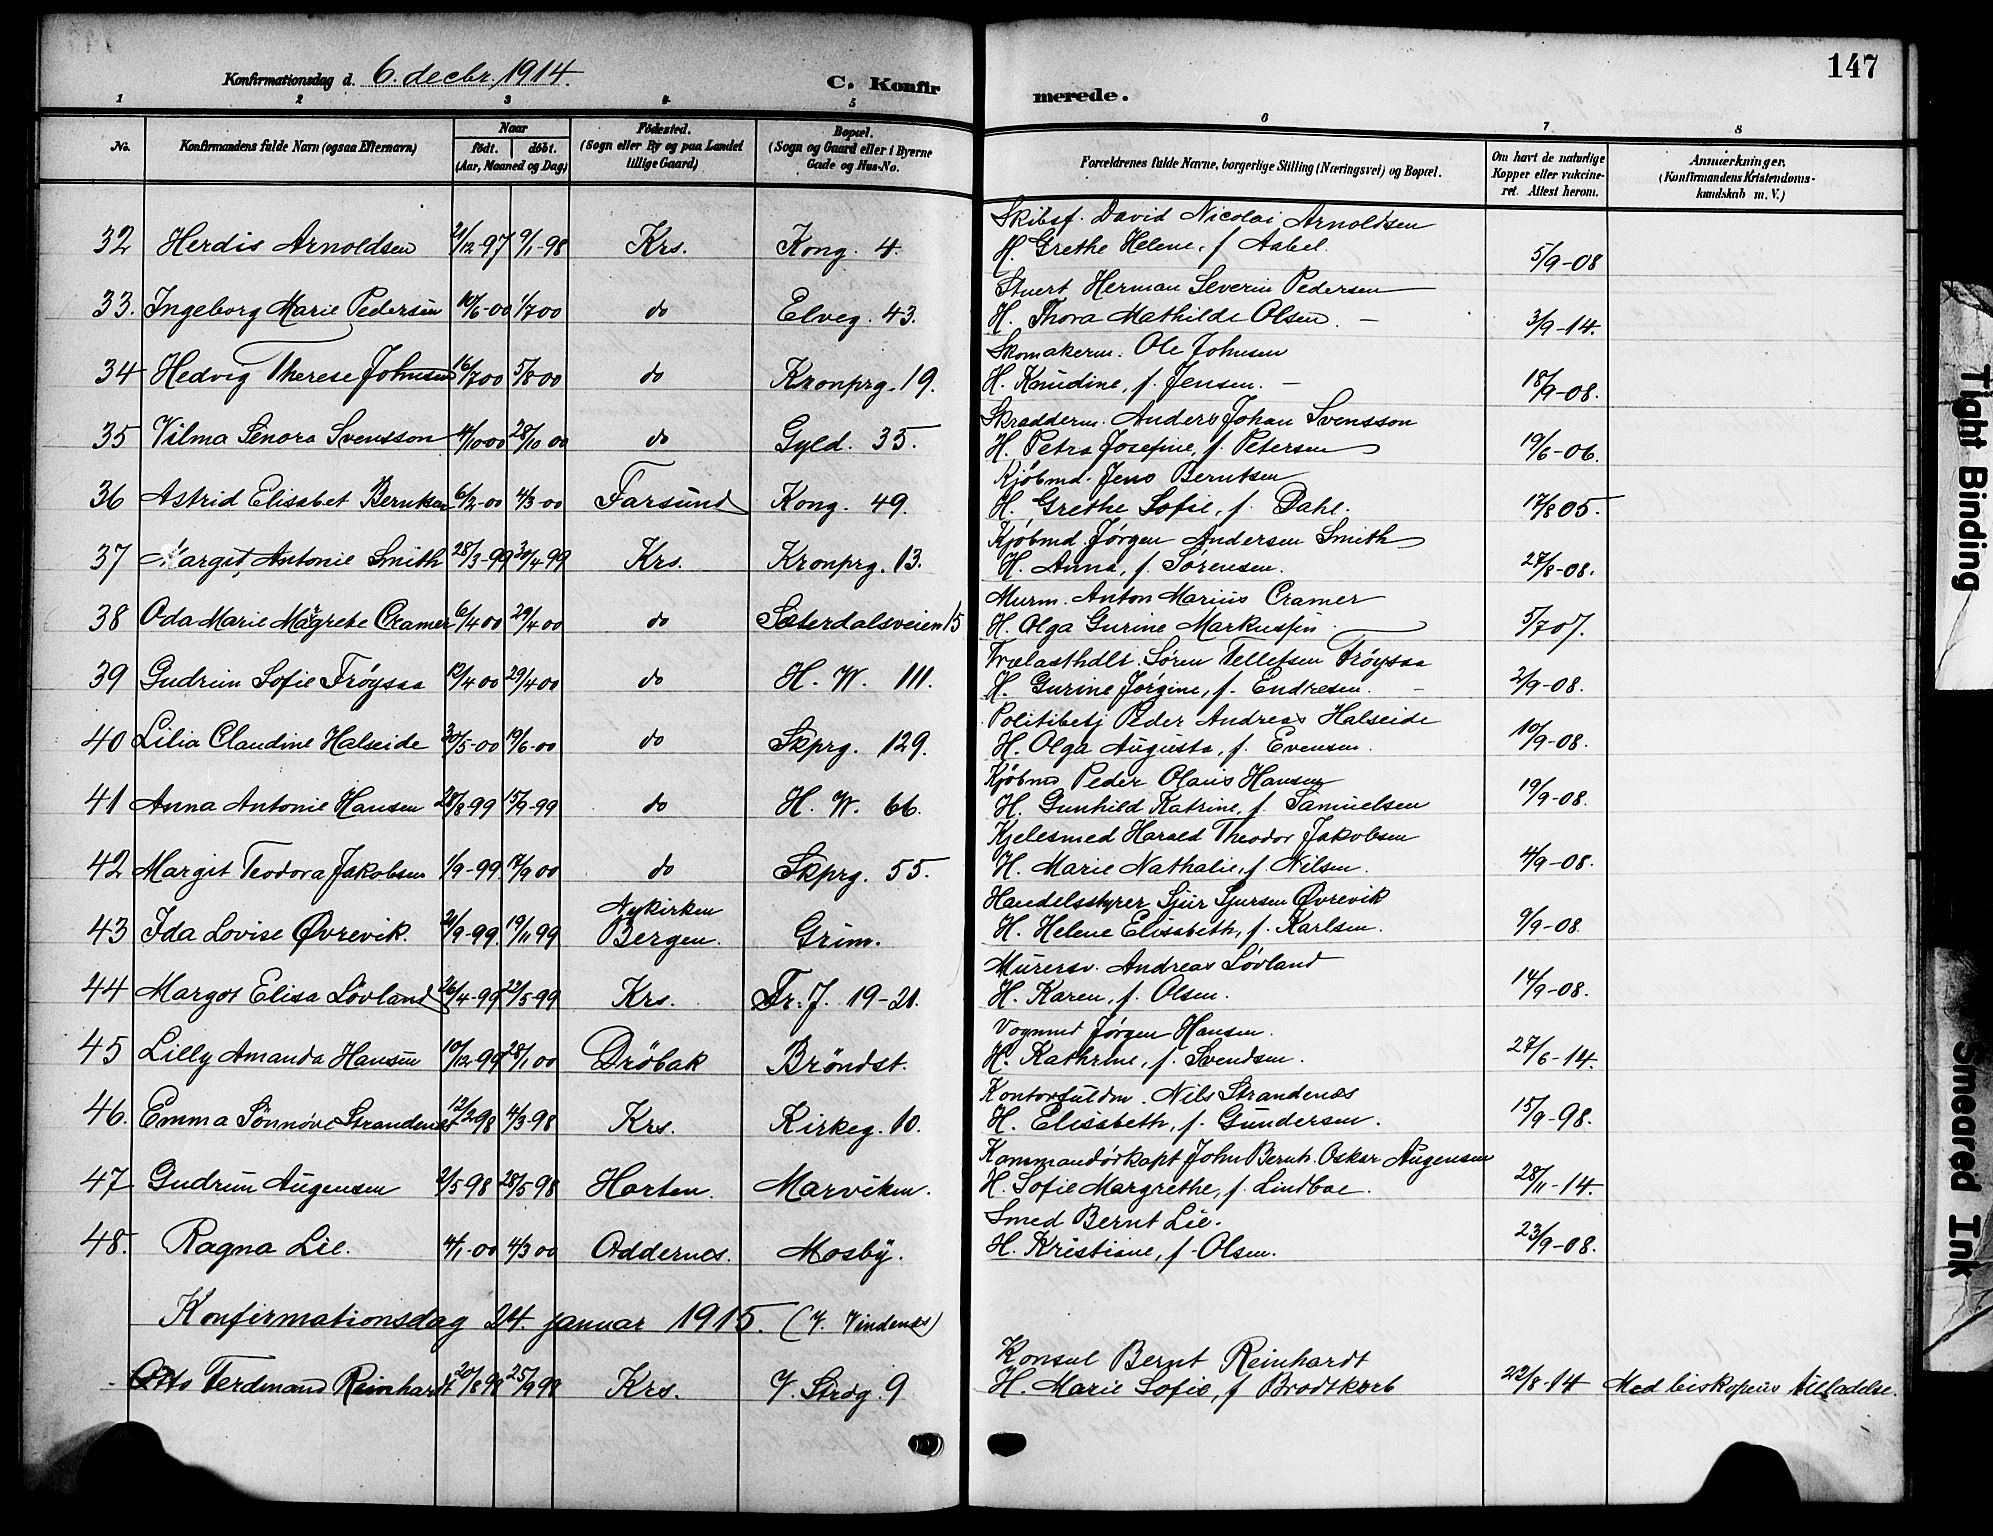 147
Konfirmationsdag d. 6. decbr. 1914.
C. Konfirmerede.
1 2 3 4 5 6 7 8
No. Konfirmandens fulde Navn (ogsaa Efternavn) Naar født. døbt. (Aar, Maaned og Dag) Fødested. (Sogn eller By og paa Landet tillige Gaard) Bopæl. (Sogn og Gaard eller i Byerne Gade og Hus-No. Forældrenes fulde Navne, borgerlige Stilling (Næringsvei) og Bopæl. Om havt de naturlige Kopper eller vakcineret. Attest herom. Anmærkninger. (Konfirmandens Kristendomskundskab m. V.)
Skibsf. David Nicolai Arnoldsen
32 Herdis Arnoldsen 21/12-97 9/1-98 Krs. Kong. 4. H. Grethe Helene, f. Aabel. 5/9-08
Stuert Herman Severin Pedersen
33. Ingeborg Marie Pedersen 10/6-00 1/7 00 do Elveg. 43. H. Thora Mathilde Olsen. — 3/9-14.
Skomakerm. Ole Johnsen
34 Hedvig Therese Johnsen 16/7 00 5/8 00 do Kronprg. 19. H. Knudine, f. Jensen. — 18/9-08.
Skradderm. Anders Johan Svensson
35 Vilma Senora Svensson 4/10 00 28/10 00 do Gyld. 35. H. Petra Josefine, f. Petersen 19/6-06.
Kjøbmd. Jens Berntsen
36 Astrid Elisabet Berntsen 6/2-00 4/3-00 Farsund Kong. 49. H. Grethe Sofie, f. Dahl. 17/8 05.
Kjøbmd. Jørgen Andersen Smith
37 Margit Antonie Smith 28/3-99 30/4-99 Krs. Kronprg. 13. H. Anna, f. Sørensen. 27/8-08.
Murm. Anton Marius Cramer
38 Oda Marie Margrete Cramer 6/4 00 29/4 00 do Sæterdalsveien 15 H. Olga Gurine Markussen 5/7 07.
Trælasthdlr. Søren Tellefsen Frøysaa
39 Gudrun Sofie Frøysaa 12/4 00 29/4 00 do H. W. 111. H. Gurine Jørgine, f. Endresen. — 2/9-08.
Politibetj Peder Andreas Halseide
40 Lilia Claudine Halseide 30/5-00 19/6-00 do Skprg. 129. H. Olga Augusta, f. Evensen. 10/9-08.
Kjøbmd Peder Olaus Hansen
41 Anna Antonie Hansen 28/8 99 15/9-99 do H. W. 66. H. Gunhild Katrine, f. Samuelsen 19/9-08.
Kjelesmed Harald Theodor Jakobsen
42 Margit Teodora Jakobsen 1/9-99. 17/9 00 do Skprg. 55. H. Marie Nathalie, f. Nilsen. 4/9-08.
Handelsstyrer Sjur Sjursen Øvrevik
43 Ida Lovise Øvrevik. 21/9-99. 19/11 99 Nykirken Bergen. Grim. H. Helene Elisabeth, f. Karlsen. 9/9-08.
Murersv. Andreas Løvland
44 Margot Elisa Løvland 26/4-99 22/5-99 Krs. Fr. J. 19-21. H. Karen, f. Olsen. 14/9-08.
Vognmd Jørgen Hansen.
45 Lilly Amanda Hansen 10/12-99 28/1 00 Drøbak Brøndst. H. Kathrine, f. Svendsen. 27/6-14.
Kontorfuldm. Nils Strandenæs
46. Emma Sønnøve Strandenæs 12/2 98 4/3-98 Krs. Kirkeg. 10. H. Elisabeth, f. Gundersen. 15/9-98.
Kommandørkapt John Bernh. Oskar Augensen
47 Gudrun Augensen 2/5-98 28/5-98 Horten. Marviken. H. Sofie Margrethe, f. Lindboe. 28/11-14.
Smed Bernt Lie.
48. Ragna Lie. 4/1-00 4/3 00 Oddernes. Mosby. H. Kristiane, f. Olsen. 23/9-08.
Konfirmationsdag 24. januar 1915. (J. Vindenes)
Konsul Bernt Reinhardt
Otto Ferdinand Reinhardt 20/8 98 25/9 98 Krs. V. Strdg. 9 H. Marie Sofie, f. Brodtkorb 22/8-14 Med biskopens tilladelse.
Tight Binding
Smeared Ink